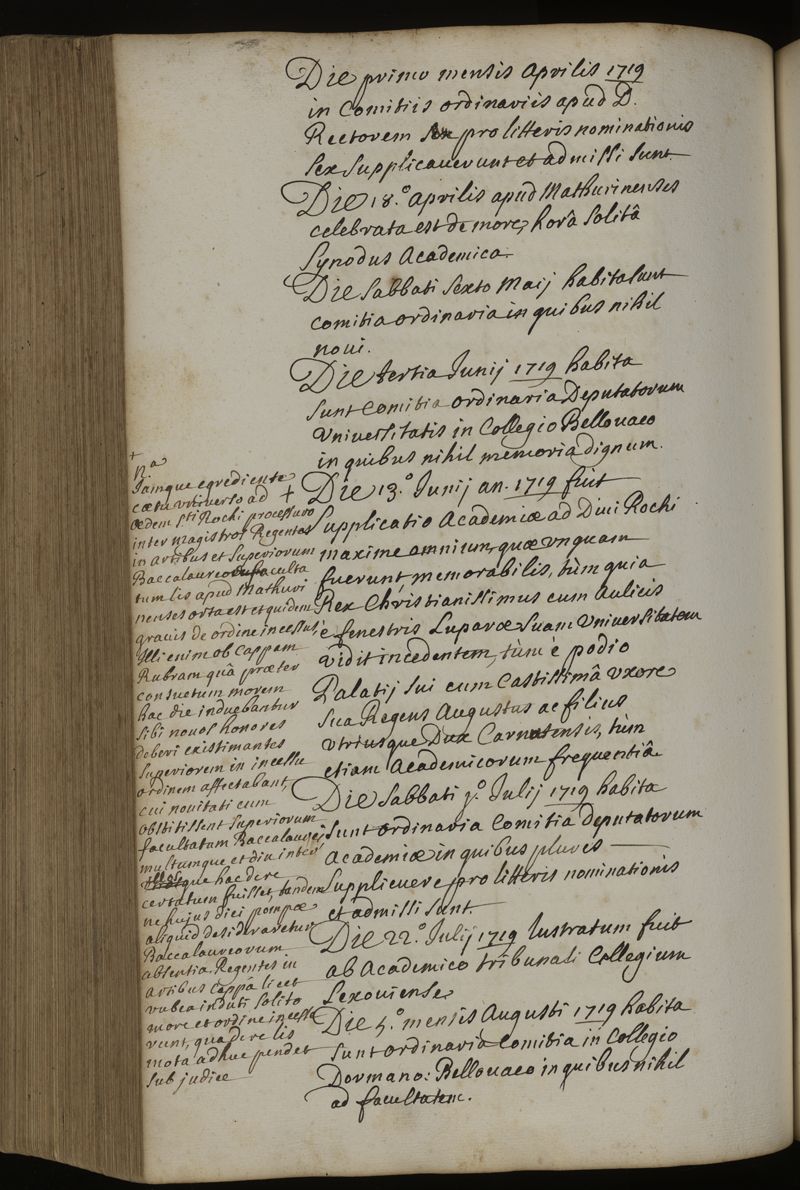 Die primo mensis Aprilis 1719
in Comitiis ordinariis apud D.
Rectorem pro litteris nominationis
sex supplicaverunt et admissi sunt
Die 18.º Aprilis apud Mathurinenses
celebrata est de more, horâ solitâ
Synodus Academica.
Die Sabbati sexto Maij habita sunt
comitia ordinaria in quibus nihil
noui.
Die tertia Junij 1719 habita
sunt Comitia ordinaria Deputatorum
Vniuersitatis in Collegio Bellouaco
in quibus nihil memoria dignum.
+ Die 13.º Junij an. 1719 fuit
supplicatio Academiæ ad Diui Rochi
maxime omnium, quæ vnquam
fuerunt, memorabilis, tùm quia
Rex Christianissimus cum Aulicis
è fenestris Luparæ suam Vniuersitatem
vidit incedentem, tùm è podio
Palatij sui cum Castissimâ vxore
sua Regens Augustus ac filius
vtriusque Dux Carnutensis, tùm
etiam Academicorum frequentiâ
Die Sabbati j.º Julij 1719 habita
sunt ordinaria Comitia deputatorum
Academiæ in quibus plures
supplicuere pro litteris nominationis
et admissi sunt.
Die 22.º Julij 1719 lustratum fuit
ab Academico tribunali Collegium
Lexouiense
Die 5.º mensis Augusti 1719 habita
sunt ordinaria Comitia in Collegio
Dormano: Bellouaco in quibus nihil
ad facultatem.
+
n.ª
Jamque egrediente
cœtu vniuerso ad
ædem Sti Rochi processuro
inter magistros Regentes
in artibus et superiorum
Baccalaureos faculta
tum lis apud Mathuri
nenses orta est et quidem
grauis de ordine incessus,
illi enim ob Cappam
Rubram quâ præter
consuetum morem
hac die induebantur
sibi nouos honores
deberi existimantes
superiorem in incessu
ordinem affectabant
cui nouitati cum
obstitissent superiorum
facultatum Baccalaurei
multumque et diu inter
illosque hac de re
certatum fuisset, tandem
ne hujus diei pompæ
aliquid desideraretur
Baccalaureorum
absentia Regentes in
artibus Cappâ licet
rubea induti solito
more et ordine incesse
runt, qua de re lis
mota adhuc pendet
sub judice